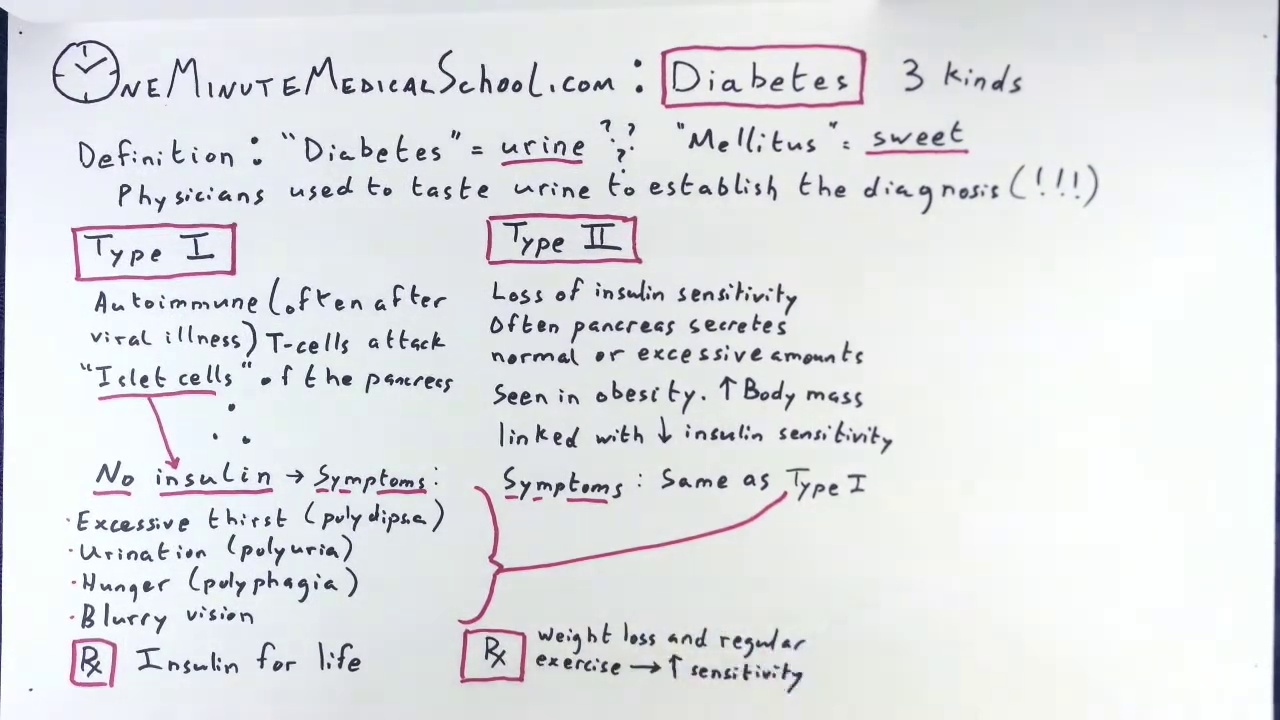 ONEMINUTEMEDICALSCHOOL.COM : Diabetes 3 kinds
Definition : "Diabetes" = urine ??? "Mellitus" = sweet
Physicians used to taste urine to establish the diagnosis (!!!)
Type I
Autoimmune (often after
viral illness) T-cells attack
"Islet cells" of the pancreas
∴
No insulin → Symptoms :
· Excessive thirst (polydipsia)
· Urination (polyuria)
· Hunger (polyphagia)
· Blurry vision
Rx Insulin for life
Type II
Loss of insulin sensitivity
Often pancreas secretes
normal or excessive amounts
Seen in obesity. ↑ Body mass
linked with ↓ insulin sensitivity
Symptoms : Same as Type I
Rx weight loss and regular
exercise → ↑ sensitivity